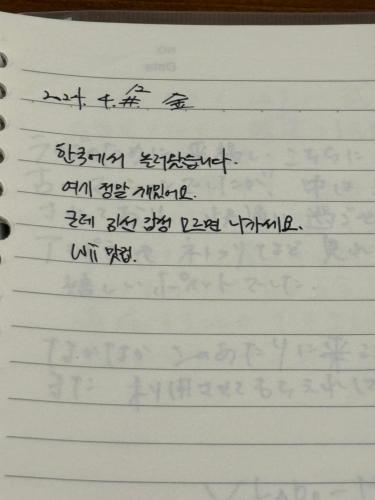 2024. 4. 12 金
한국에서 놀러왔습니다.
여기 정말 재밌어요.
근데 김선 감성 모르면 나가세요.
Wii 맛럽.